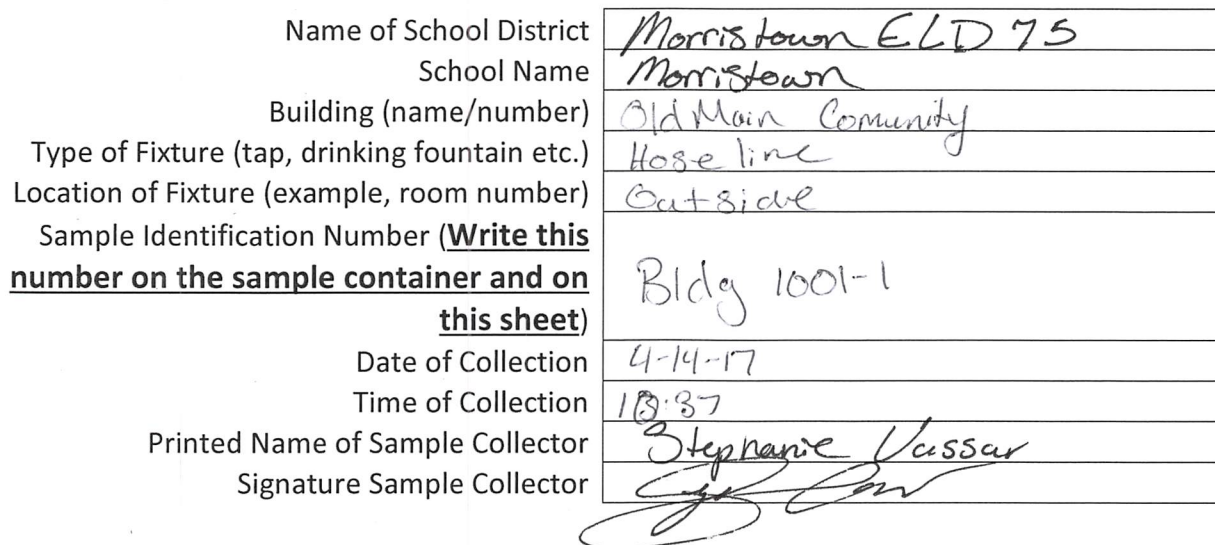 Name of School District Morristown ELD 75
School Name Morristown
Building (name/number) Old Main Comunity
Type of Fixture (tap, drinking fountain etc.) Hose line
Location of Fixture (example, room number) Outside
Sample Identification Number (Write this
number on the sample container and on
this sheet) Bldg 1001-1
Date of Collection 4-14-17
Time of Collection
Printed Name of Sample Collector Stephanie Vassar
Signature Sample Collector